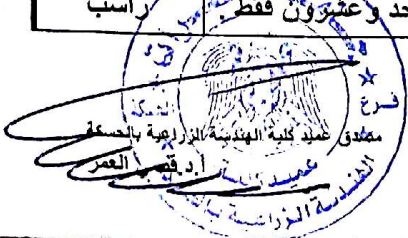 حد وعشرون فقط
راسب
فرع
الحسكة
مصدق عميد كلية الهندسة الزراعية بالحسكة
أ.د. قصي العمر
عميد كلية
الهندسة الزراعية